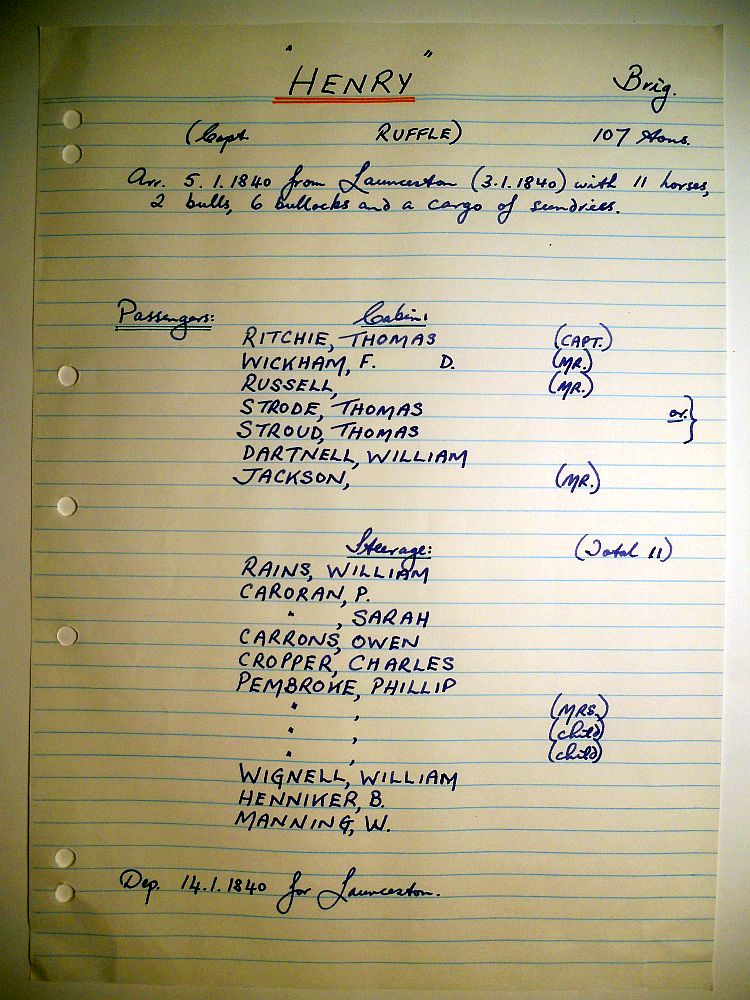 "HENRY" Brig.
(Capt. RUFFLE) 107 tons.
Arr. 5.1.1840 from Launceston (3.1.1840) with 11 horses,
2 bulls, 6 bullocks and a cargo of sundries.
Passengers: Cabin:
RITCHIE, THOMAS (CAPT.)
WICKHAM, F. D. (MR.)
RUSSELL, (MR.)
STRODE, THOMAS or }
STROUD, THOMAS
DARTNELL, WILLIAM
JACKSON, (MR.)
Steerage: (Total 11)
RAINS, WILLIAM
CARORAN, P.
" , SARAH
CARRONS, OWEN
CROPPER, CHARLES
PEMBROKE, PHILLIP
" , (MRS.)
" , (child)
" , (child)
WIGNELL, WILLIAM
HENNIKER, B.
MANNING, W.
Dep. 14.1.1840 for Launceston.